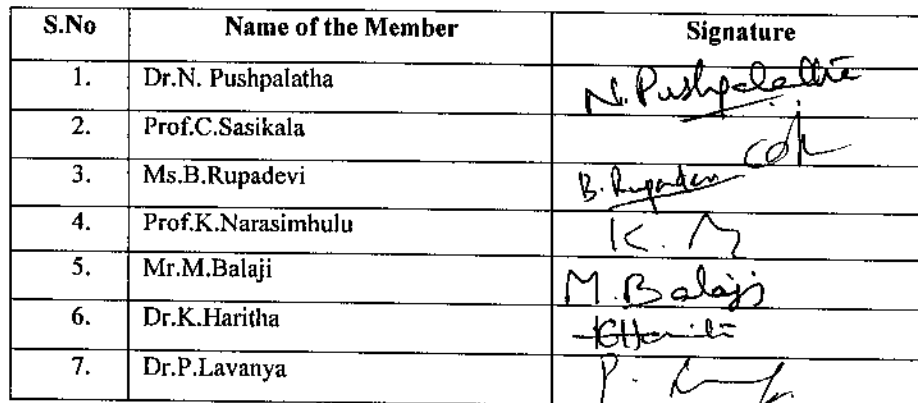 S.No Name of the Member Signature
1. Dr.N. Pushpalatha N. Pushpalatha
2. Prof.C.Sasikala
3. Ms.B.Rupadevi B. Rupadevi
4. Prof.K.Narasimhulu K.
5. Mr.M.Balaji M. Balaji
6. Dr.K.Haritha K Haritha
7. Dr.P.Lavanya P.